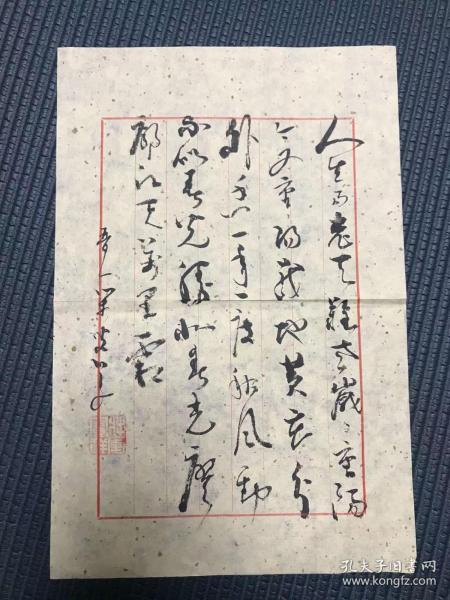 人生易老天難老歲々重陽
今又重陽戰地黃花分
外香一年一度秋風勁
不似春光勝似春光寥
廓江天萬里霜
孔夫子旧书网
www.kongfz.com